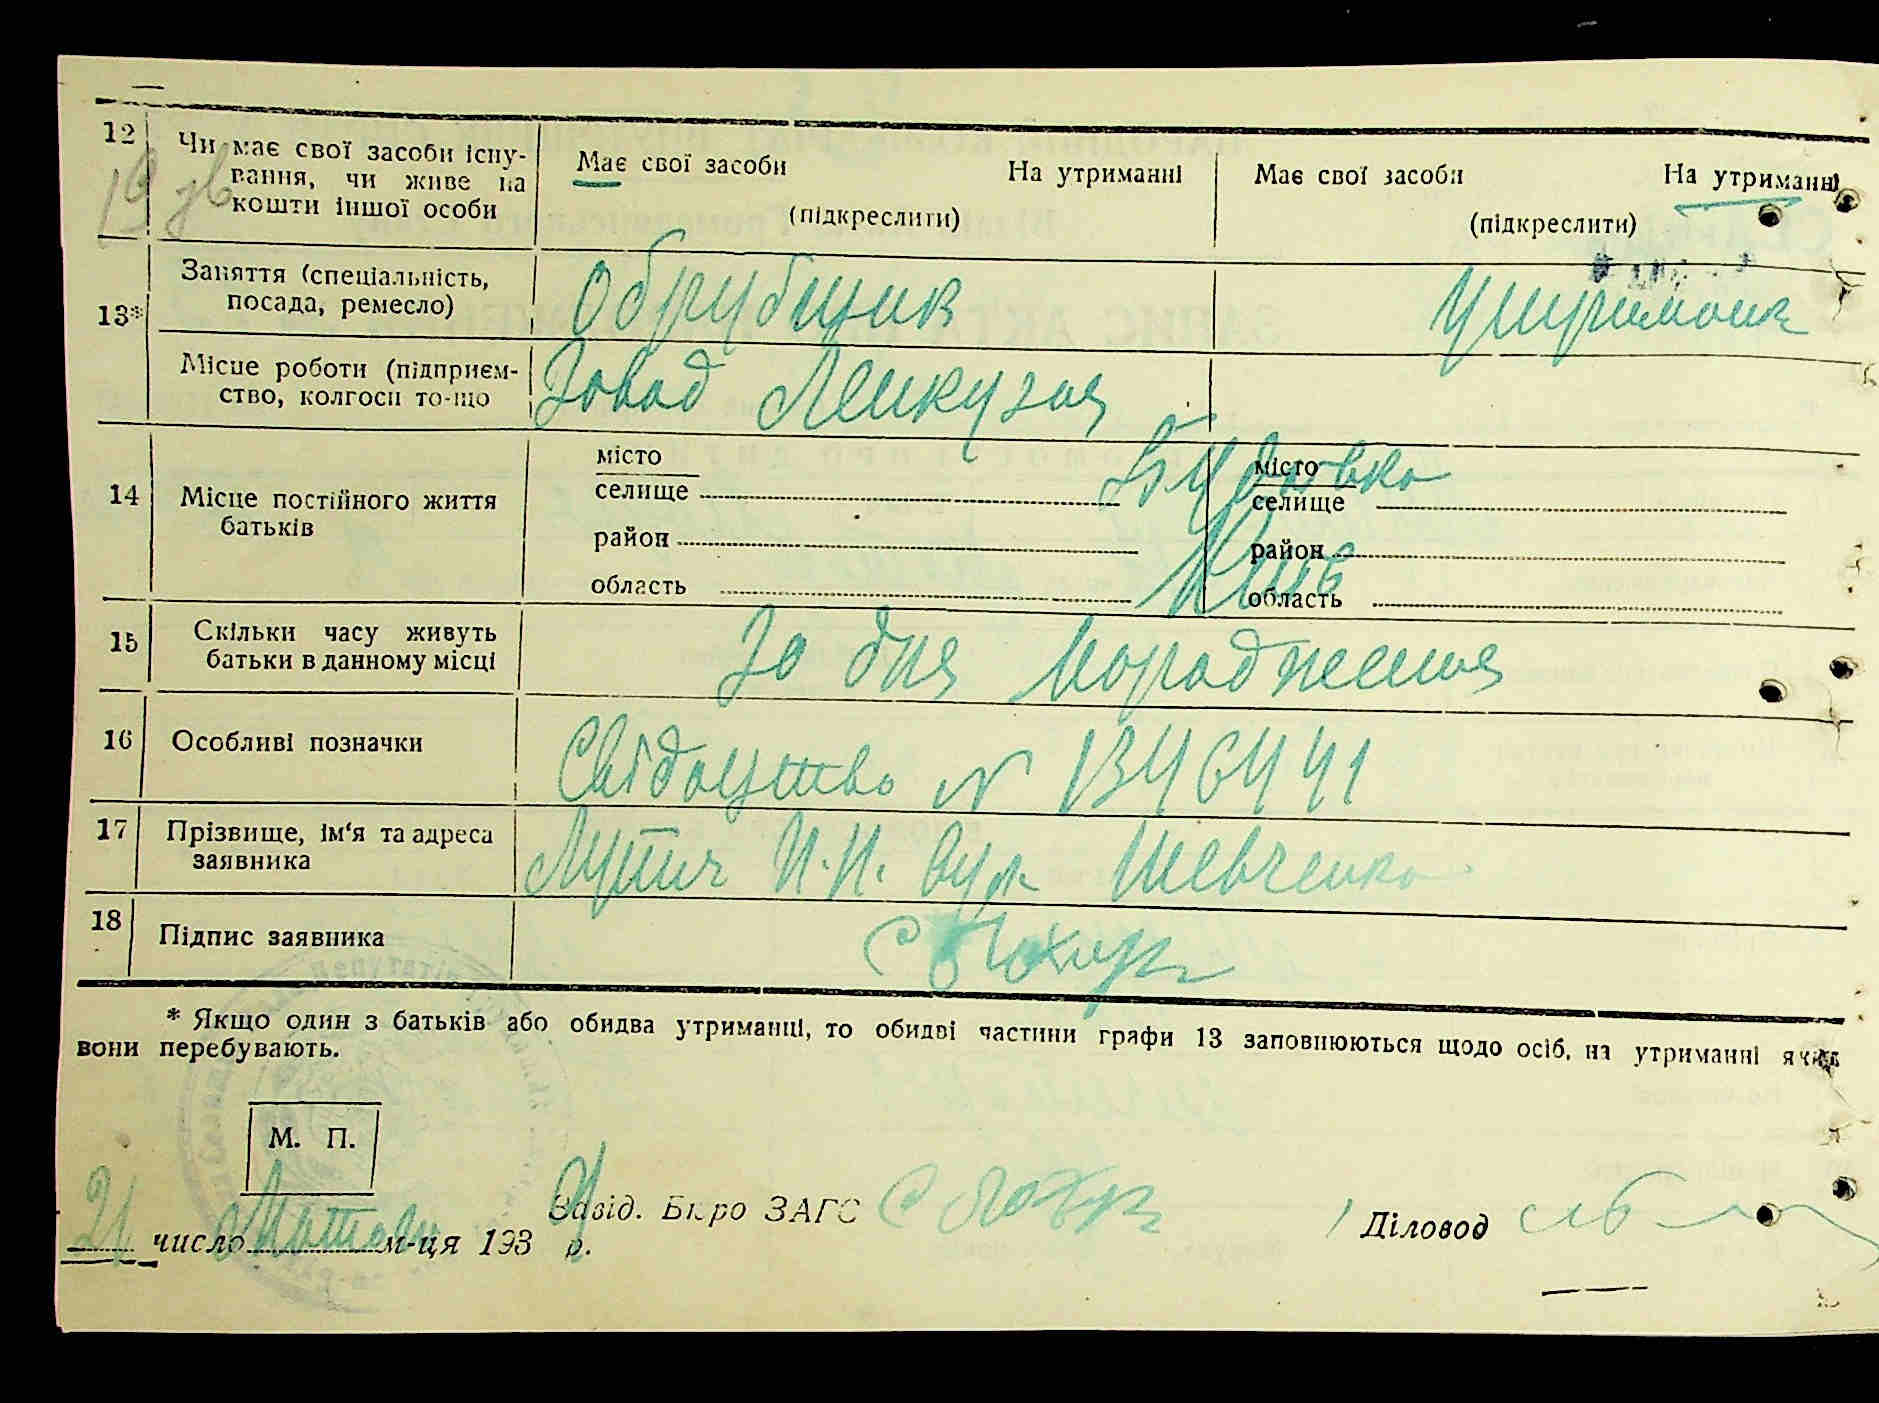 12
19 зв
Чи має свої засоби існу-
вання, чи живе на
кошти іншої особи
Має свої засоби На утриманні
(підкреслити)
Має свої засоби На утриманні
(підкреслити)
13*
Заняття (спеціальність,
посада, ремесло)
Обрубщик
Місце роботи (підприєм-
ство, колгосп то-що
Завод Ленкузня
14
Місце постійного життя
батьків
місто
селище
район
область
місто
селище
район
область
Київ
15
Скільки часу живуть
батьки в данному місці
За дня народження
16
Особливі позначки
Свідоцтво N 1346441
17
Прізвище, ім'я та адреса
заявника
Лутич П.П. вул. Шевченка
18
Підпис заявника
* Якщо один з батьків або обидва утриманці, то обидві частини графи 13 заповнюються щодо осіб, на утриманні яких
вони перебувають.
М. П.
21 число м-ця 1939 р.
Завід. Бюро ЗАГС
Діловод